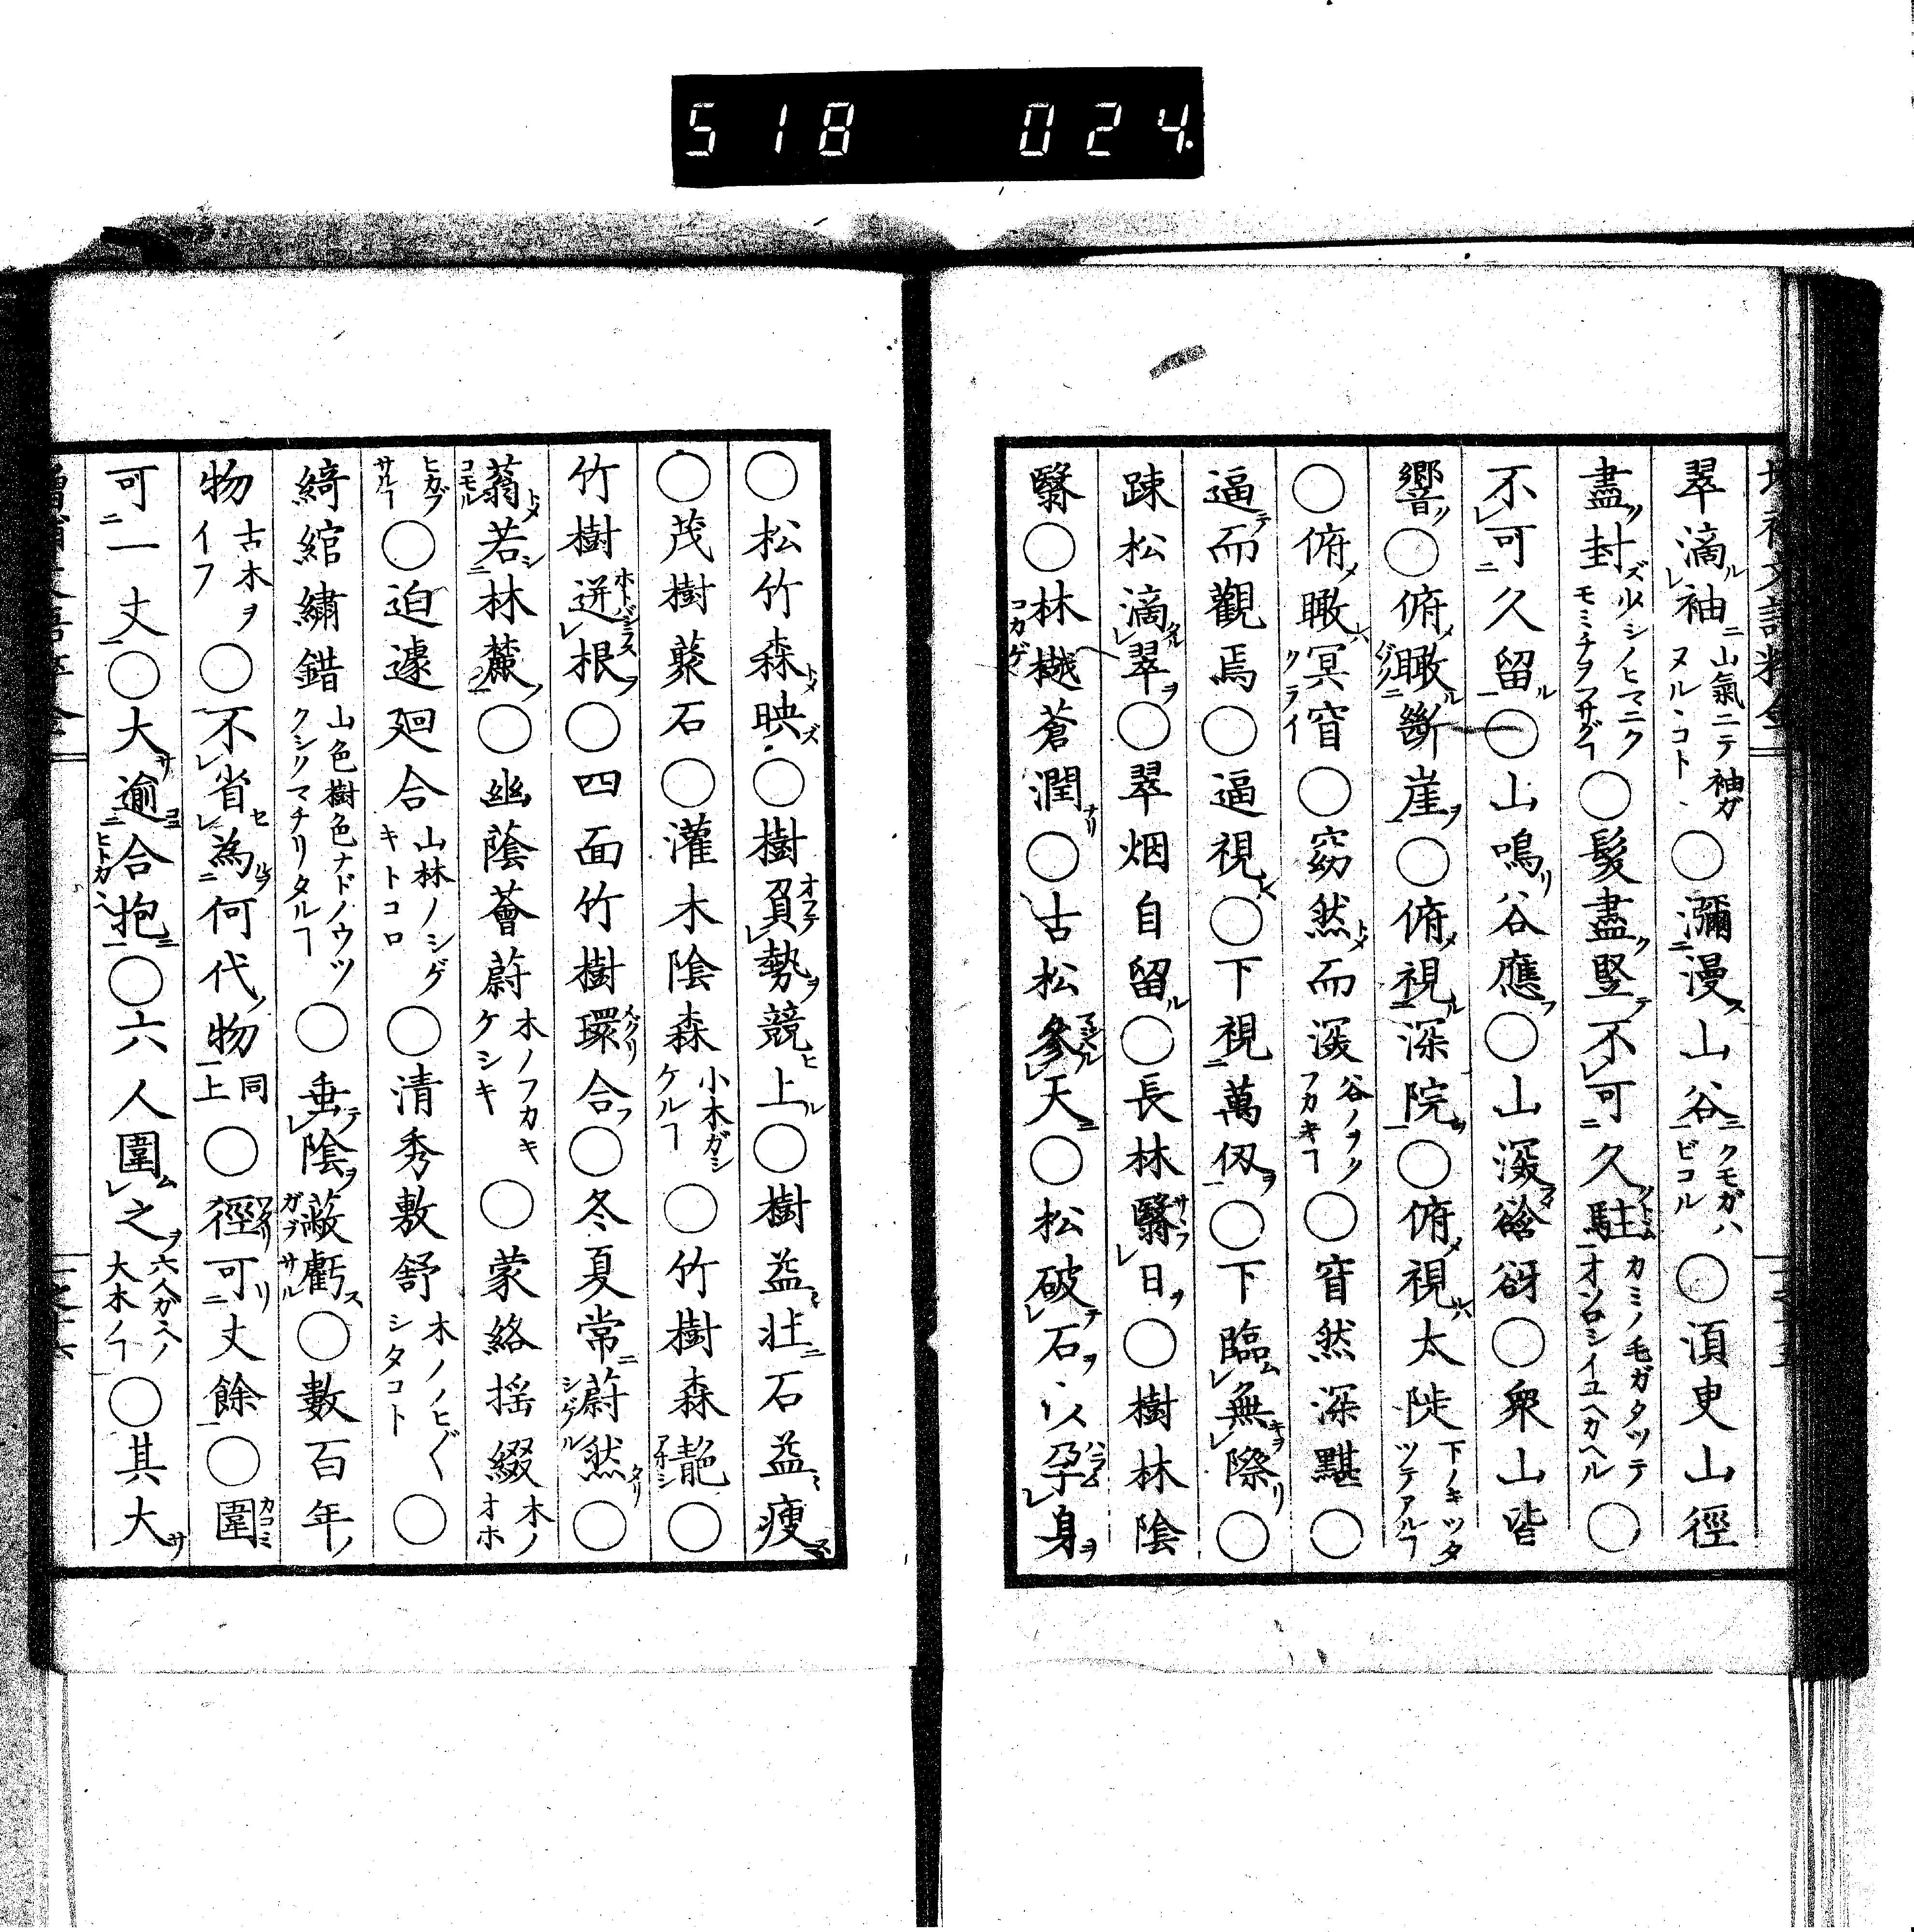 518 024
翠滴袖ニ山氣ニテ袖ガヌルヽコト○瀰漫山谷クモガハビコル○湏臾山徑
盡封ズ少シノヒマニクモミチヲフサグヿ○髮盡竪不可久駐カミノ毛ガタツテオソロシイユヘカヘル○
不可久留○山鳴谷應○山深谽谺○衆山皆
響○俯瞰斷崖○俯視深院○俯視太陡下ノキツタツテアルヿ
○俯瞰冥窅クライ○窈然而深谷ノヲクフカキヿ○窅然深黮○
逼而觀焉○逼視○下視萬仭○下臨無際○
踈松滴翠○翠烟自留○長林翳日○樹林陰
翳○林樾コカゲ蒼潤○古松參天○松破石以孕身
○松竹森映○樹負勢競上○樹益壯石益瘦
○茂樹藂石○灌木陰森小木ガシゲルヿ○竹樹森靘○
竹樹迸根○四面竹樹環合○冬夏常蔚然○
蓊若林麓○幽蔭薈蔚木ノフカキケシキ○蒙絡揺綴木ノオホ
ヒカブサルヿ○迫遽廻合山林ノシゲキトコロ○清秀敷舒木ノノビ〱シタコト○
綺綰繡錯山色樹色ナドノウツクシクマチリタルヿ○垂陰蔽虧○數百年
物古木ヲイフ○不省為何代物同上○徑可丈餘○圍
可一丈○大逾合抱○六人圍之六人ガヽヘノ大木ノヿ○其大